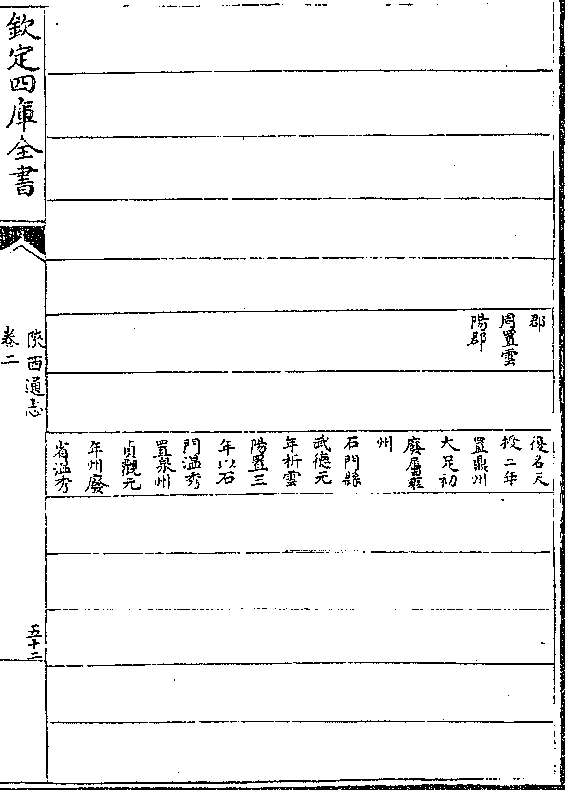 郡
周置雲
陽郡
復名天
授二年
置鼎州
大足初
廢屬雍
州
石門縣
武德元
年析雲
陽置三
年以石
門溫秀
置泉州
貞觀元
年州廢
省溫秀
欽定四庫全書
陜西通志
卷二
五十二